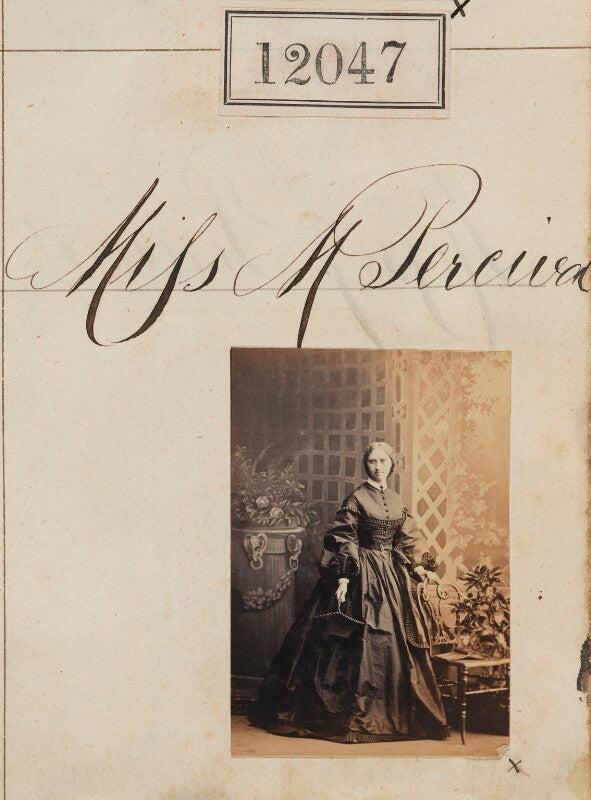 12047
Miss M Percival